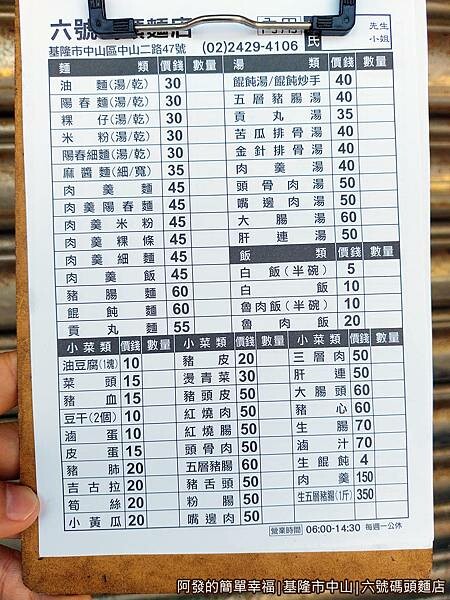 六號碼頭麵店 內用
基隆市中山區中山二路47號 (02)2429-4106 氏 先生 小姐
麵類 價錢 數量
油麵(湯/乾) 30
陽春麵(湯/乾) 30
粿仔(湯/乾) 30
米粉(湯/乾) 30
陽春細麵(湯/乾) 30
麻醬麵(細/寬) 35
肉羹麵 45
肉羹陽春麵 45
肉羹米粉 45
肉羹粿條 45
肉羹細麵 45
肉羹飯 45
豬腸麵 60
餛飩麵 60
貢丸麵 55
湯類 價錢 數量
餛飩湯/餛飩炒手 40
五層豬腸湯 40
貢丸湯 35
苦瓜排骨湯 40
金針排骨湯 40
肉羹湯 40
頭骨肉湯 50
嘴邊肉湯 50
大腸湯 60
肝連湯 50
飯類 價錢 數量
白飯(半碗) 5
白飯 10
魯肉飯(半碗) 10
魯肉飯 20
小菜類 價錢 數量
油豆腐(1塊) 10
菜頭 15
豬血 15
豆干(2個) 10
滷蛋 10
皮蛋 15
豬肺 20
吉古拉 20
筍絲 20
小黃瓜 20
小菜類 價錢 數量
豬皮 20
燙青菜 30
豬頭皮 50
紅燒肉 50
紅燒腸 50
頭骨肉 50
五層豬腸 60
豬舌頭 50
粉腸 50
嘴邊肉 50
小菜類 價錢 數量
三層肉 50
肝連 50
大腸頭 60
豬心 60
生腸 70
滷汁 70
生餛飩 4
肉羹 150
生五層豬腸(1斤) 350
營業時間 06:00-14:30 每週一公休
阿發的簡單幸福|基隆市中山|六號碼頭麵店